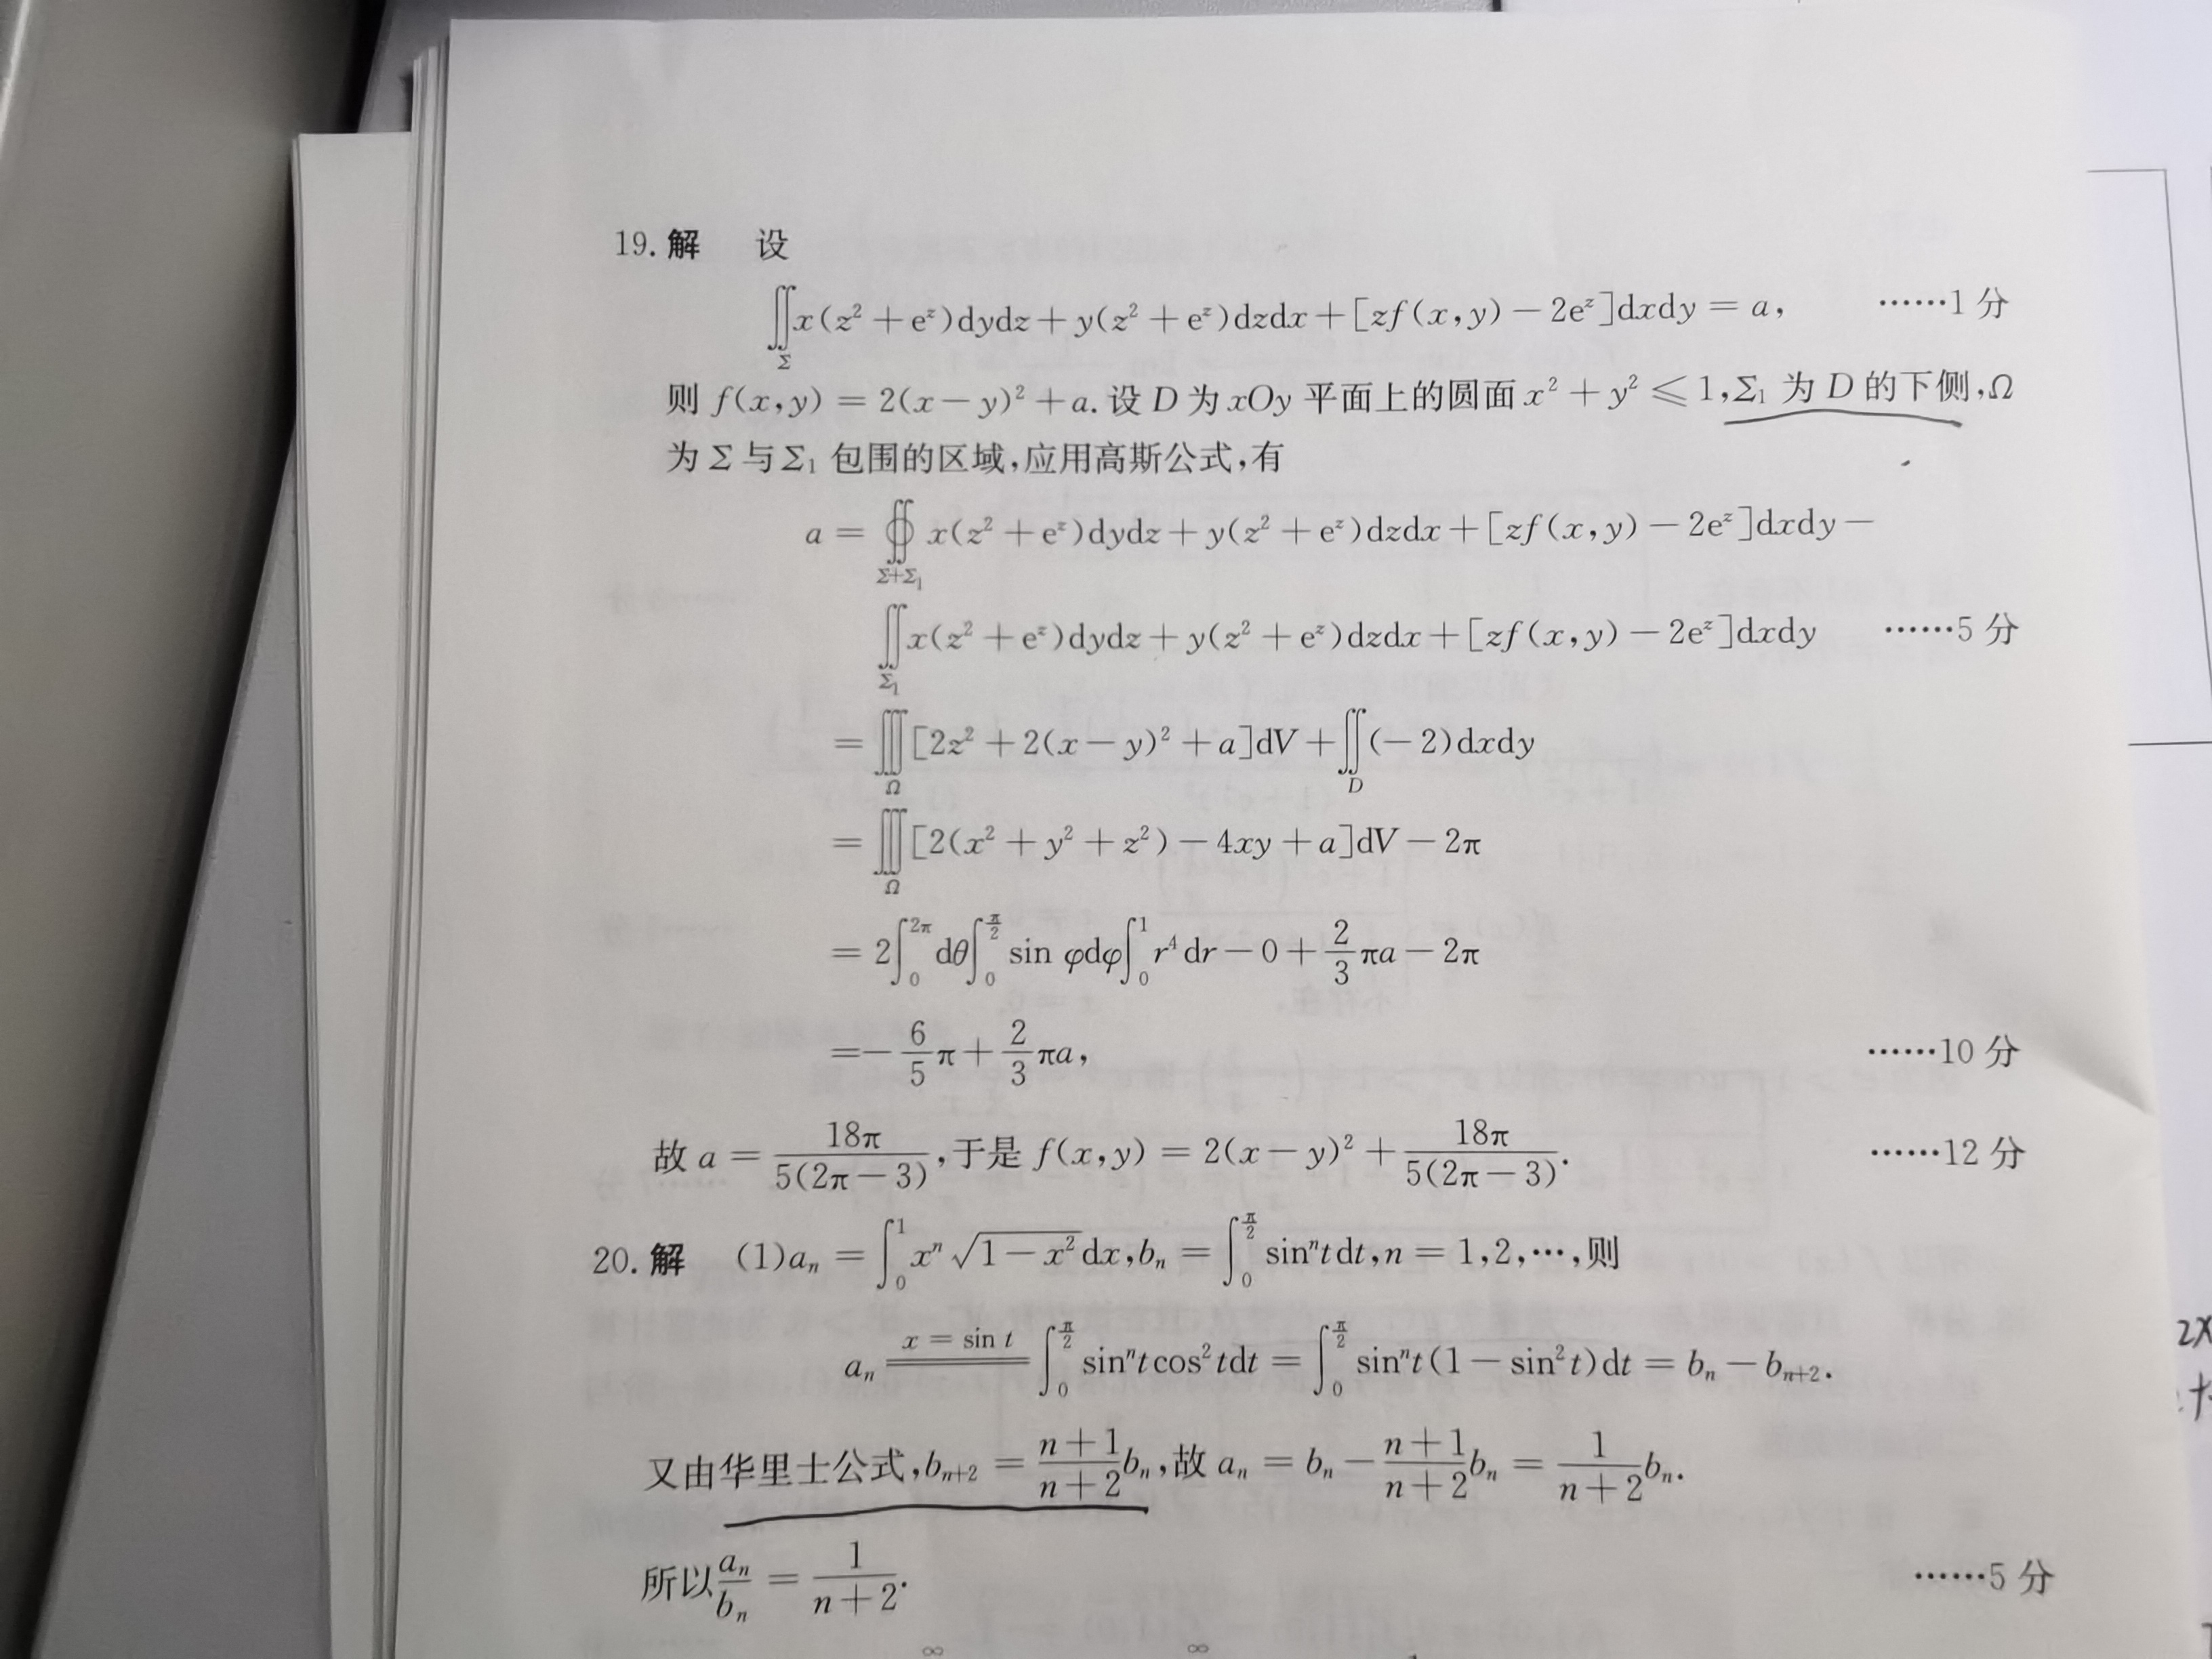 19. 解 设
∬_Σ x(z² + e^z)dydz + y(z² + e^z)dzdx + [zf(x,y) − 2e^z]dxdy = a, ……1 分
则 f(x,y) = 2(x−y)² + a. 设 D 为 xOy 平面上的圆面 x² + y² ⩽ 1, Σ₁ 为 D 的下侧, Ω
为 Σ 与 Σ₁ 包围的区域, 应用高斯公式, 有
a = ∯_{Σ+Σ₁} x(z² + e^z)dydz + y(z² + e^z)dzdx + [zf(x,y) − 2e^z]dxdy −
∬_{Σ₁} x(z² + e^z)dydz + y(z² + e^z)dzdx + [zf(x,y) − 2e^z]dxdy ……5 分
= ∭_Ω [2z² + 2(x−y)² + a]dV + ∬_D (−2)dxdy
= ∭_Ω [2(x² + y² + z²) − 4xy + a]dV − 2π
= 2∫_0^{2π} dθ ∫_0^{π/2} sin φdφ ∫_0^1 r⁴dr − 0 + 2/3 πa − 2π
= − 6/5 π + 2/3 πa, ……10 分
故 a = 18π/(5(2π−3)), 于是 f(x,y) = 2(x−y)² + 18π/(5(2π−3)). ……12 分
20. 解 (1)a_n = ∫_0^1 x^n √(1−x²) dx, b_n = ∫_0^{π/2} sin^n t dt, n = 1,2,⋯, 则
a_n =(x = sin t)= ∫_0^{π/2} sin^n t cos² t dt = ∫_0^{π/2} sin^n t (1−sin² t)dt = b_n − b_{n+2}.
又由华里士公式, b_{n+2} = (n+1)/(n+2) b_n, 故 a_n = b_n − (n+1)/(n+2) b_n = 1/(n+2) b_n.
所以 a_n/b_n = 1/(n+2). ……5 分
∞ ∞
2x